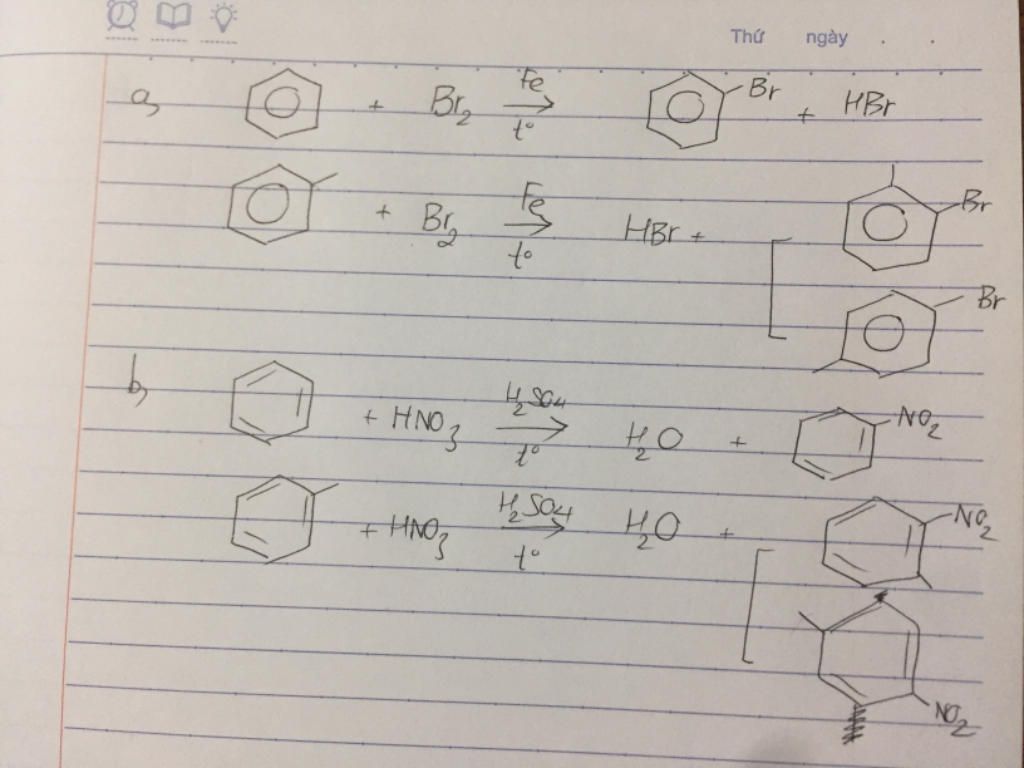 Thứ ngày . .
a, + Br₂ Fe → t° Br + HBr
+ Br₂ Fe → t° HBr + Br
Br
b, + HNO₃ H₂SO₄ → t° H₂O + NO₂
+ HNO₃ H₂SO₄ → t° H₂O + NO₂
NO₂